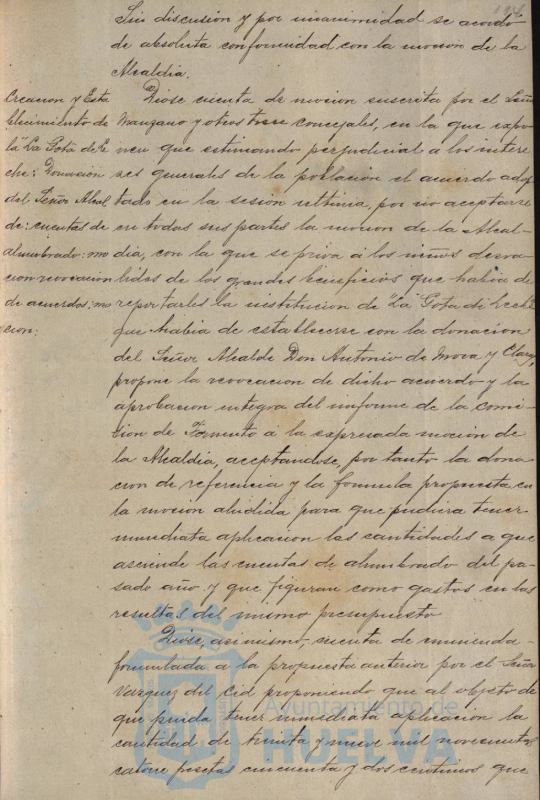 Sin discusión y por unanimidad se acordó
de absoluta conformidad con la moción de la
Alcaldía.
Creacion y Esta
blecimiento de
la "La Gota de Le
che: Donación
del Señor Alcal
de: cuentas de
alumbrado: mo
cion revocacion
de acuerdos: mo
cion:
Diose cuenta de mocion suscrita por el Señor
Manzano y otros trece concejales, en la que expo
nen que estimando perjudicial a los intere
ses generales de la poblacion el acuerdo adop
tado en la sesión ultima, por no aceptarse
en todas sus partes la mocion de la Alcal-
dia, con la que se priva á los niños desva
lidos de los grandes beneficios que habia de
reportarles la institucion de "La Gota de Leche"
que habia de establecerse con la donacion
del Señor Alcalde Don Antonio de Mora y Claros,
propone la revocacion de dicho acuerdo y la
aprobacion integra del informe de la Comi-
sion de Fomento á la expresada mocion de
la Alcaldia, aceptandose, por tanto la dona
cion de referencia y la formula propuesta en
la mocion aludida para que pudiera tener
inmediata aplicacion las cantidades a que
asciende las cuentas de alumbrado del pa-
sado año y que figuran como gastos en las
resultas del mismo presupuesto
Diose, asimismo, cuenta de enmienda
formulada a la propuesta anterior por el Señor
Vazquez del Cid proponiendo que al objeto de
que pueda tener inmediata aplicacion la
cantidad de treinta y nueve mil novecientas
catorce pesetas cincuenta y dos centimos que
Ayuntamiento de
HUELVA